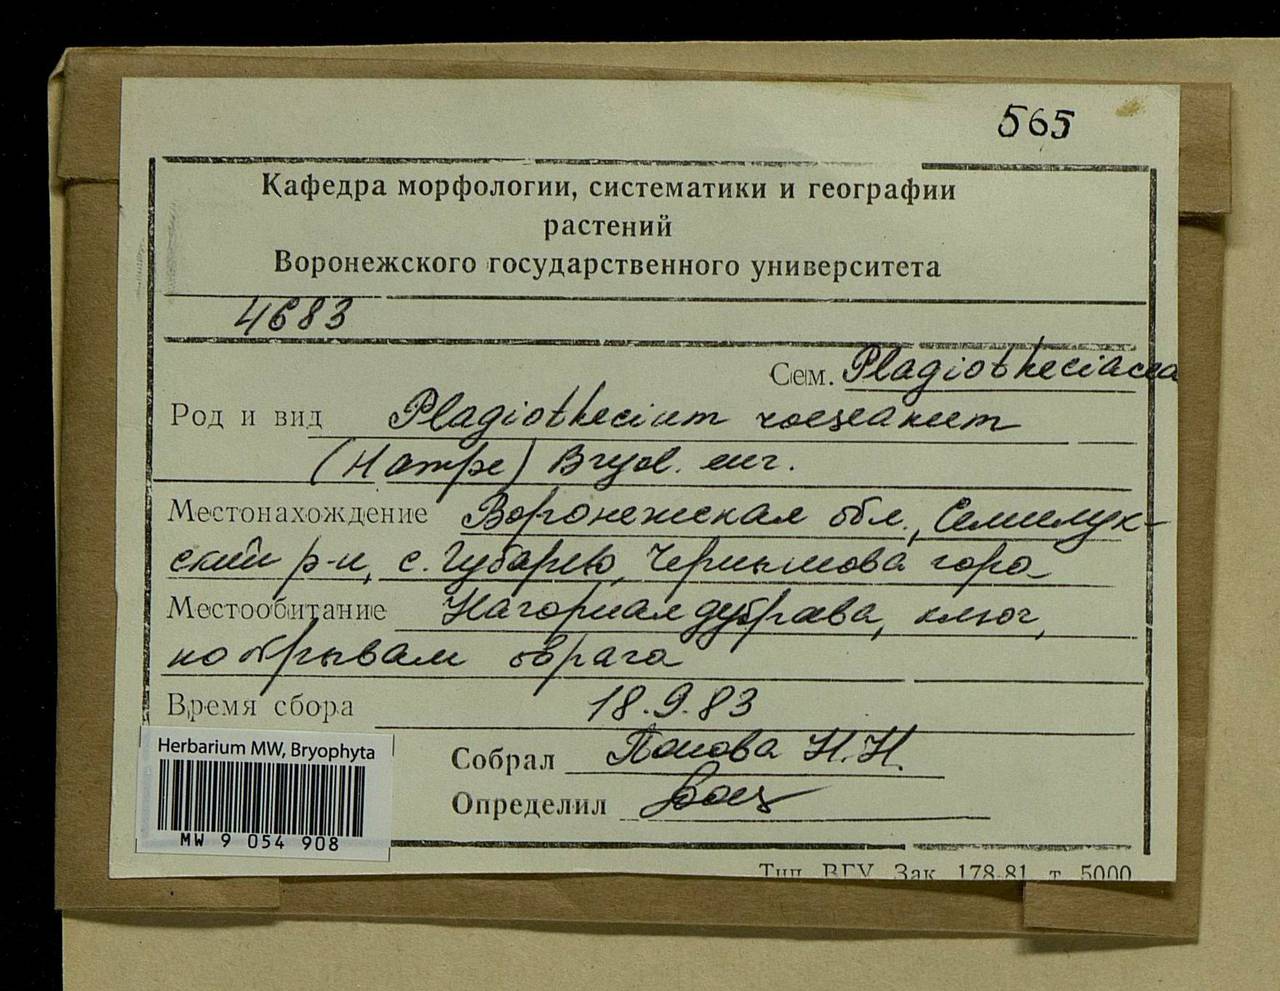 565
Кафедра морфологии, систематики и географии
растений
Воронежского государственного университета
4683
Сем. Plagiotheciacea
Род и вид Plagiothecium roeseanum
(Hampe) Bryol. eur.
Местонахождение Воронежская обл., Семилук-
ский р-н, с. Губарево, Чернышова гора
Местообитание Нагорная дубрава, ключ,
по обрывам оврага
Время сбора 18.9.83
Herbarium MW, Bryophyta
Собрал Попова Н.Н.
Определил
MW 9 054 908
Тип. ВГУ Зак. 178-81 т. 5000